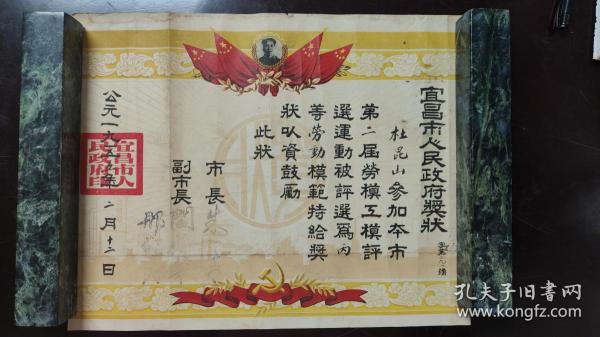 宜昌市人民政府獎狀
杜昆山參加本市
第二屆勞模工模評
選運動被評選為丙
等勞動模範特給獎
狀以資鼓勵
此狀
市長
副市長
公元一九五
二月十二日
宜昌市人
民政府印
孔夫子旧书网